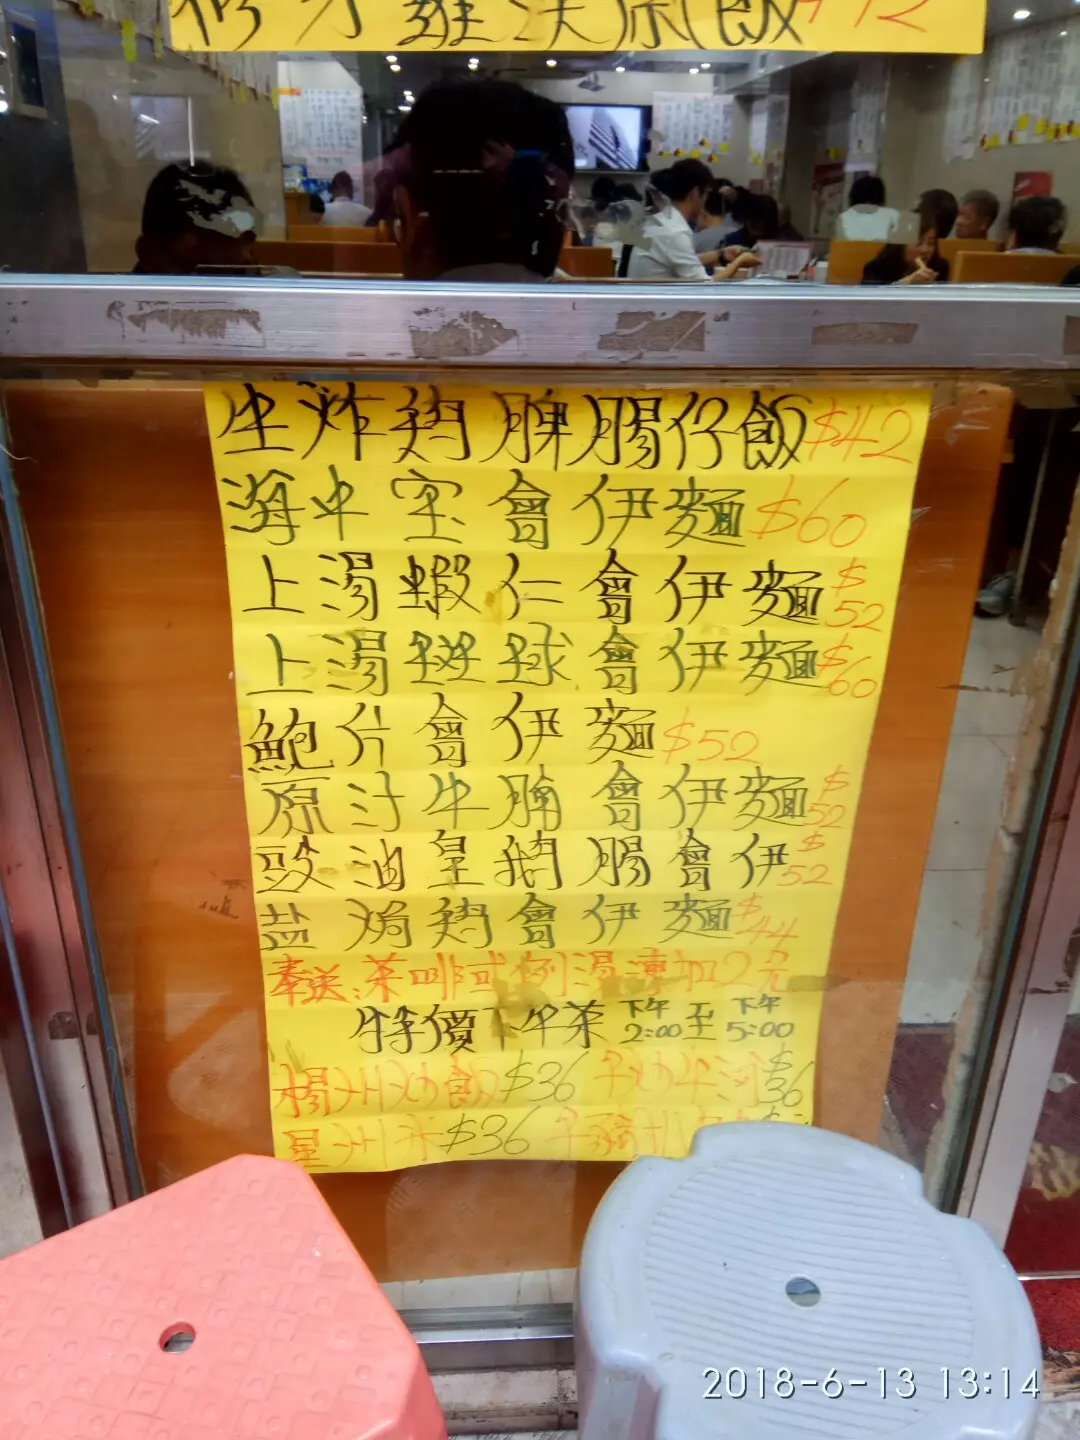 飯
生炸鸡脾腸仔飯$42
海中宝會伊麵$60
上湯蝦仁會伊麵$52
上湯球會伊麵$60
鮑片會伊麵$52
原汁牛腩會伊麵$52
豉油皇鹅腸會伊$52
盐焗鸡會伊麵$44
奉送:茶啡或例湯凍加2元
特價下午茶 下午2:00至下午5:00
楊州炒飯$36 干炒牛河$36
星州米$36
2018-6-13 13:14